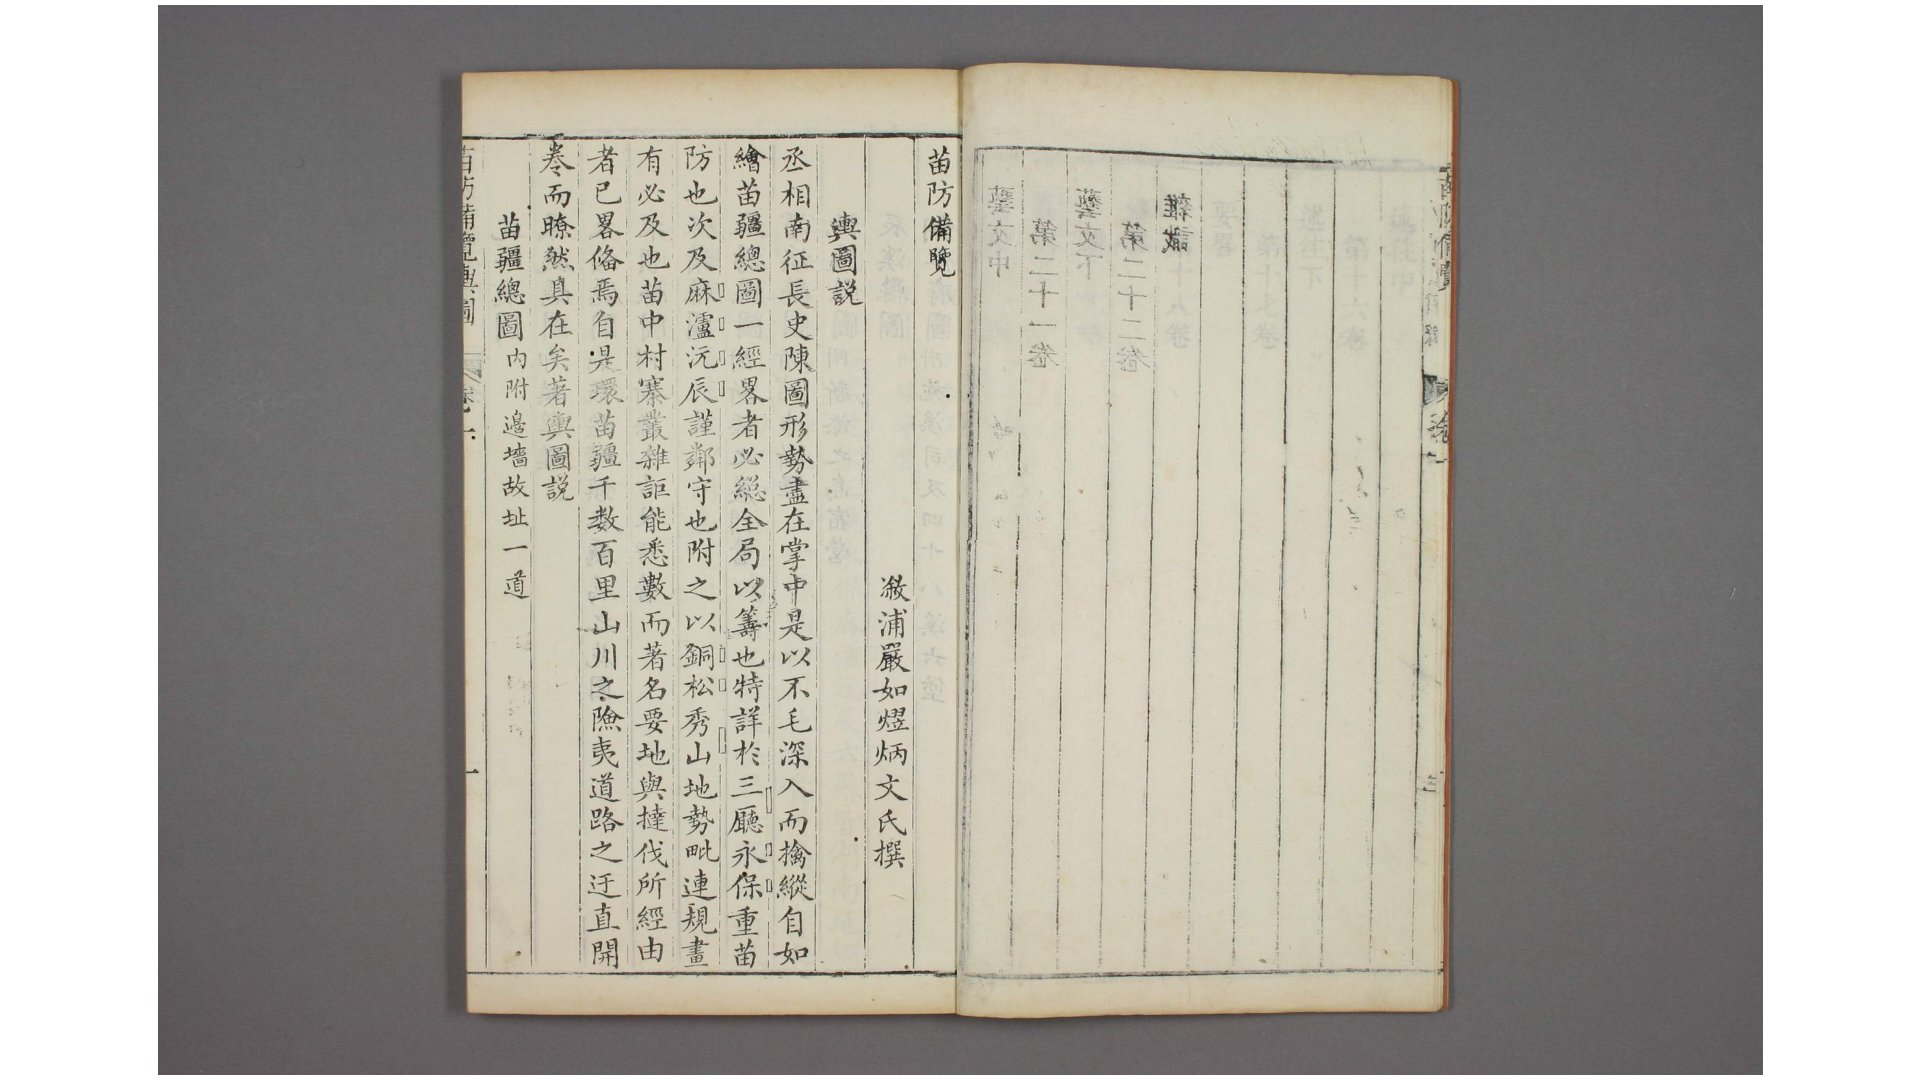 苗防備覽
苗防備覽
溆浦嚴如熤炳文氏撰
輿圖説
丞相南征長史陳圖形勢盡在掌中是以不毛深入而擒縱自如
繪苗疆總圖一經畧者必緫全局以籌也特詳於三廳永保重苗
防也次及麻瀘沅辰謹鄰守也附之以銅松秀山地勢毗連規畫
有必及也苗中村寨叢雜詎能悉數而著名要地與撻伐所經由
者已畧俻焉自是環苗疆千数百里山川之險夷道路之迂直開
卷而瞭然真在矣著輿圖説
苗疆總圖內附邊墻故址一道
苗防備覽輿圖 卷一 一